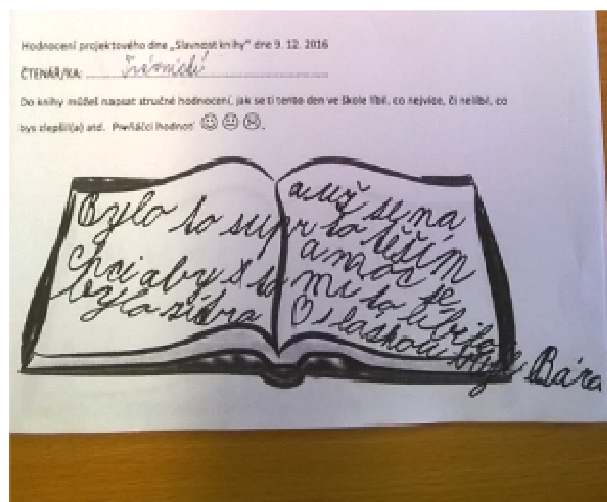 Hodnocení projektového dne „Slavnost knihy“ dne 9. 12. 2016
ČTENÁŘ/KA:
Do knihy můžeš napsat stručné hodnocení, jak se ti tento den ve škole líbil, co nejvíce, či nelíbil, co
bys zlepšil(a) atd. Prvňáčci ihodnoť ☺ 😐 ☹.
Bylo to supr
chci aby to
bylo
a už se na
to těším
a moc se
mi to líbilo
s láskou Bára